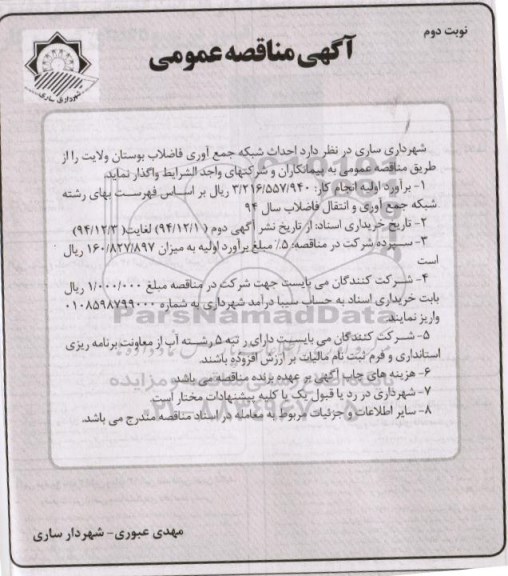 نوبت دوم
آگهی مناقصه عمومی
شهرداری ساری
شهرداری ساری در نظر دارد احداث شبکه جمع آوری فاضلاب بوستان ولایت را از
طریق مناقصه عمومی به پیمانکاران و شرکتهای واجد الشرایط واگذار نماید.
۱- برآورد اولیه انجام کار: ۳/۲۱۶/۵۵۷/۹۴۰ ریال بر اساس فهرست بهای رشته
شبکه جمع آوری و انتقال فاضلاب سال ۹۴
۲- تاریخ خریداری اسناد: از تاریخ نشر آگهی دوم (۹۴/۱۲/۱) لغایت (۹۴/۱۲/۲)
۳- سپرده شرکت در مناقصه: ۵٪ مبلغ برآورد اولیه به میزان ۱۶۰/۸۲۷/۸۹۷ ریال
است
۴- شرکت کنندگان می بایست جهت شرکت در مناقصه مبلغ ۱/۰۰۰/۰۰۰ ریال
بابت خریداری اسناد به حساب سیبا درآمد شهرداری به شماره ۰۱۰۸۵۹۸۷۹۹۰۰۰
واریز نمایند.
ParsNamadData
۵- شرکت کنندگان می بایست دارای رتبه ۵ رشته آب از معاونت برنامه ریزی
استانداری و فرم ثبت نام مالیات بر ارزش افزوده باشند.
۶- هزینه های چاپ آگهی بر عهده برنده مناقصه می باشد.
۷- شهرداری در رد یا قبول یک یا کلیه پیشنهادات مختار است.
۸- سایر اطلاعات و جزئیات مربوط به معامله در اسناد مناقصه مندرج می باشد.
مهدی عبوری- شهردار ساری